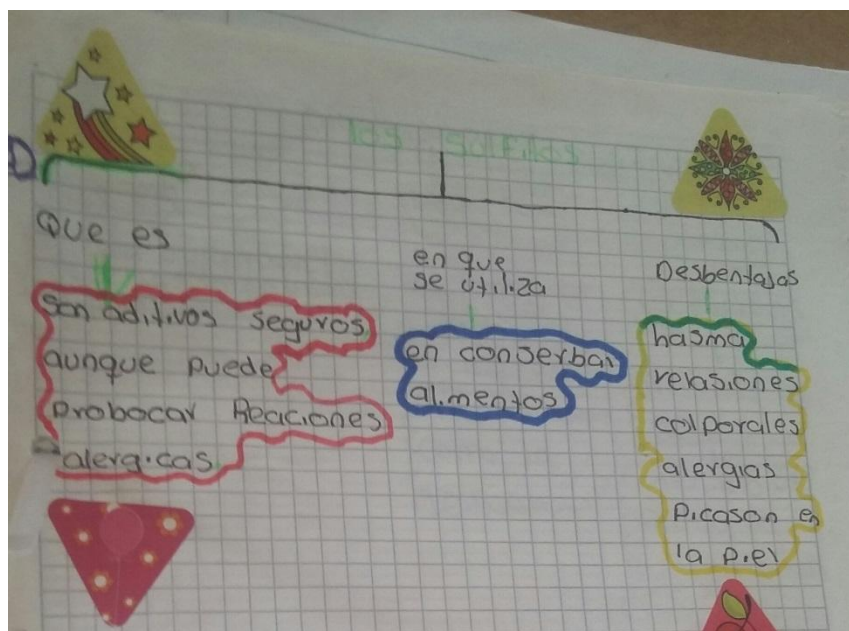 los sulfitos
Que es
son aditivos seguros
aunque puede
probocar Reaciones
alergicas
en que
se utiliza
en conserbar
alimentos
Desbentajas
hasma
relasiones
colporales
alergias
Picason en
la piel